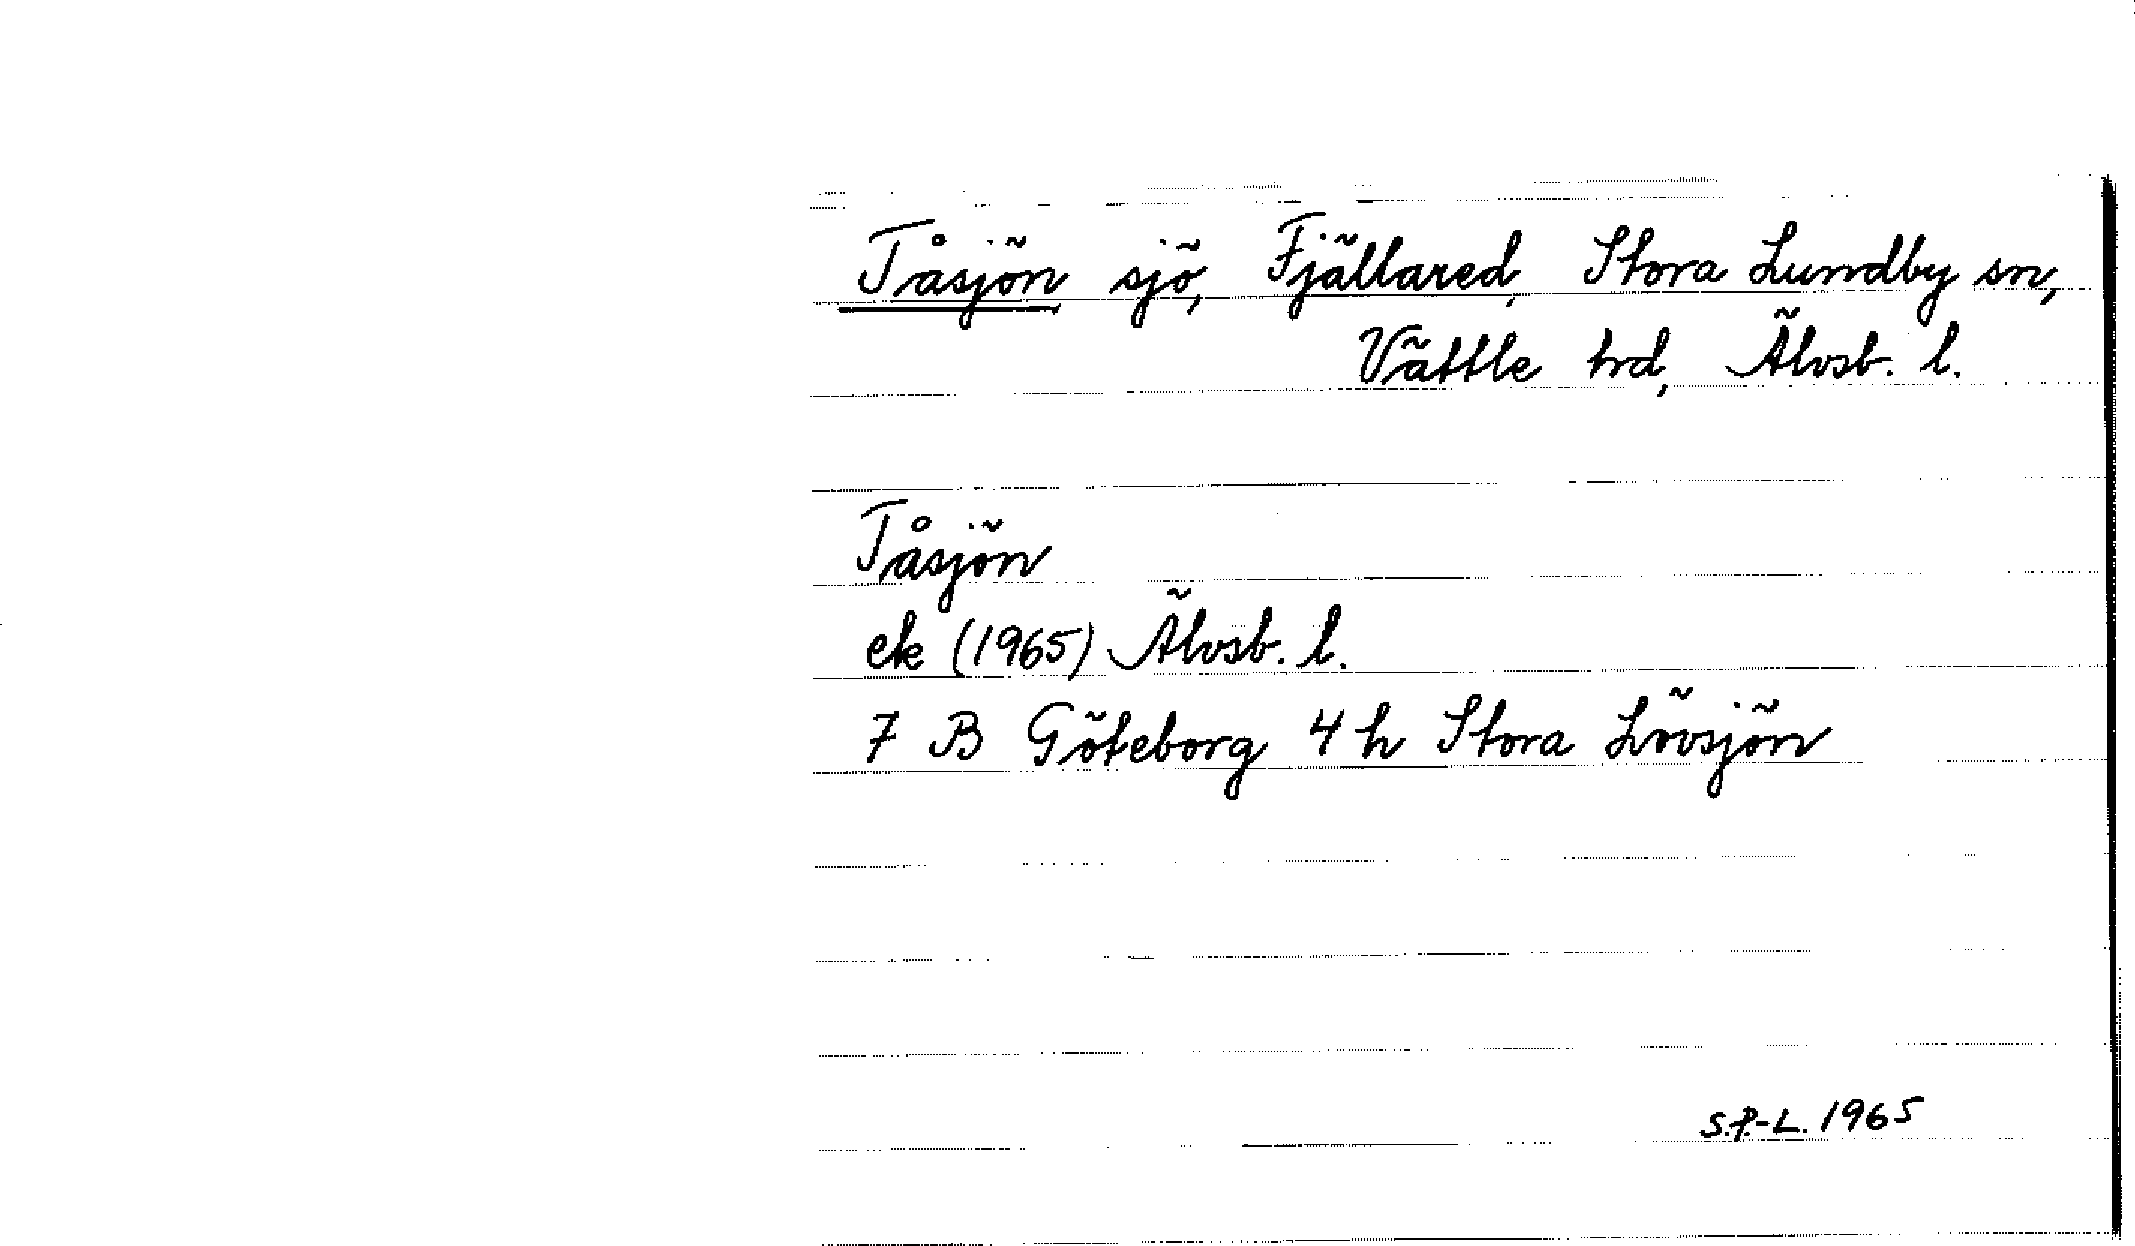 Tåsjön sjö, Fjällared, Stora Lundby sn,
Vättle hrd, Älvsb. l.
Tåsjön
ek (1965) Älvsb. l.
7 B Göteborg 4 h Stora Lövsjön
S.P.-L. 1965